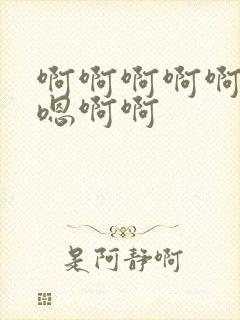 啊啊啊啊啊
嗯啊啊
是阿静啊